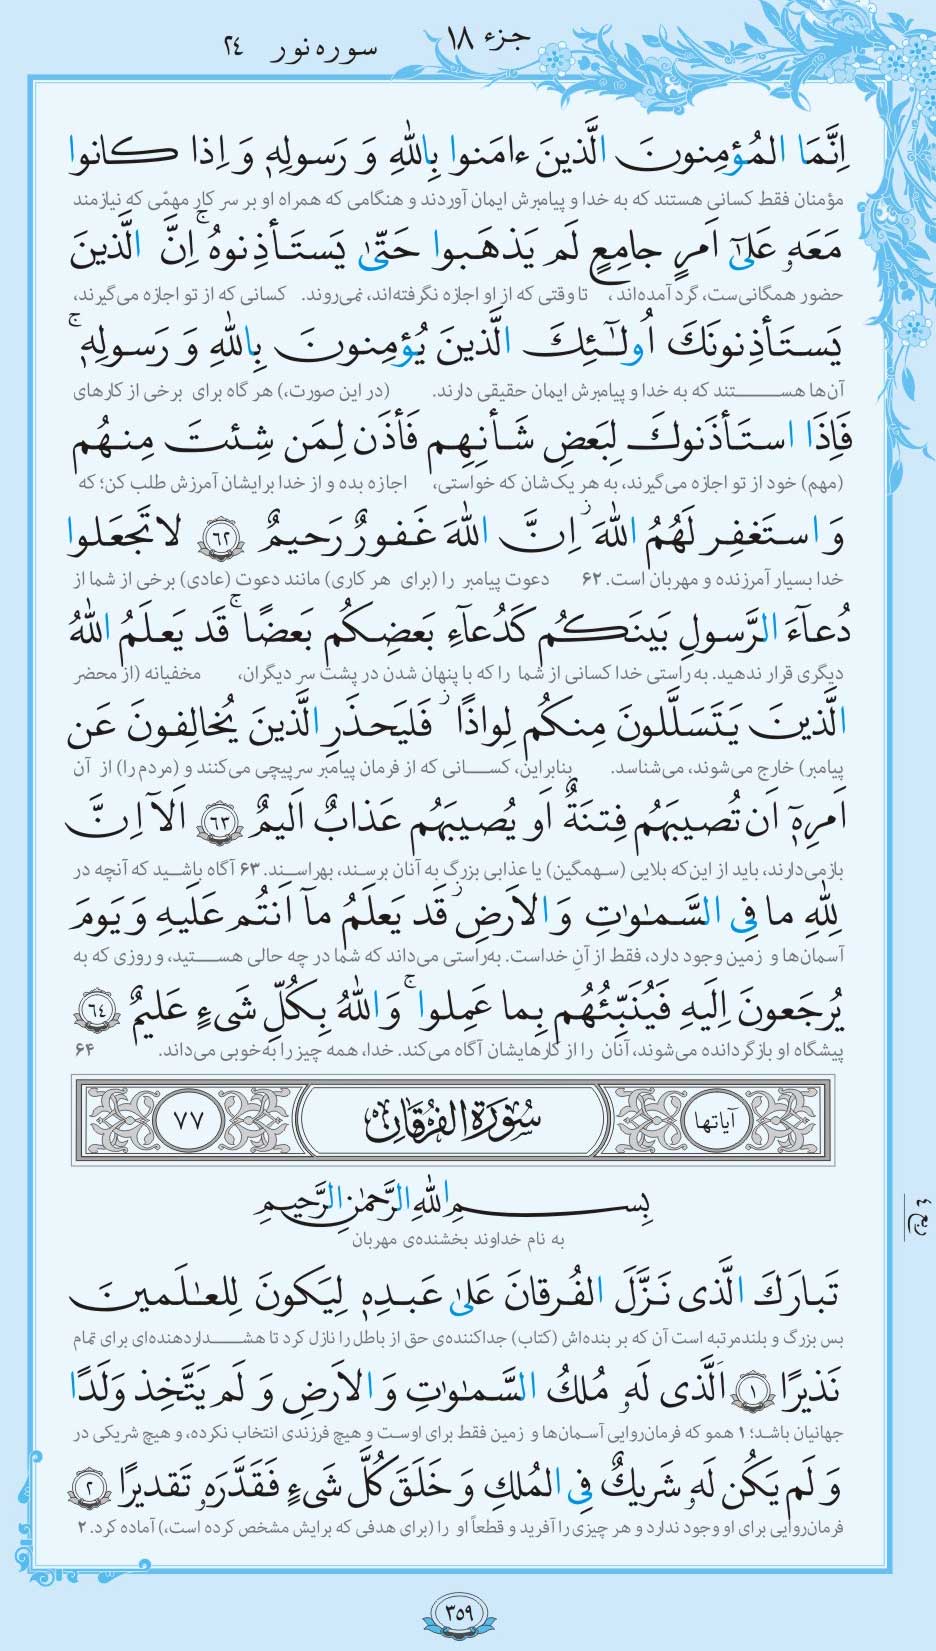 جزء ۱۸
سوره نور ۲۴
اِنَّمَا المُؤمِنونَ الَّذينَ ءامَنوا بِاللّٰهِ وَ رَسولِهٖ وَ اِذا كانوا
مؤمنان فقط کسانی هستند که به خدا و پیامبرش ایمان آوردند و هنگامی که همراه او بر سر کار مهمّی که نیازمند
مَعَهٗ عَلىٰٓ اَمرٍ جامِعٍ لَم يَذهَبوا حَتّىٰ يَستَأذِنوهُ ۚ اِنَّ الَّذينَ
حضور همگانی‌ست، گرد آمده‌اند، تا وقتی که از او اجازه نگرفته‌اند، نمی‌روند. کسانی که از تو اجازه می‌گیرند،
يَستَأذِنونَكَ اُولٰٓئِكَ الَّذينَ يُؤمِنونَ بِاللّٰهِ وَ رَسولِهٖ ۚ
آن‌ها هستند که به خدا و پیامبرش ایمان حقیقی دارند. (در این صورت،) هر گاه برای برخی از کارهای
فَاِذَا استَأذَنوكَ لِبَعضِ شَأنِهِم فَأذَن لِمَن شِئتَ مِنهُم
(مهم) خود از تو اجازه می‌گیرند، به هر یک‌شان که خواستی، اجازه بده و از خدا برایشان آمرزش طلب کن؛ که
وَ استَغفِر لَهُمُ اللّٰهَ ۚ اِنَّ اللّٰهَ غَفورٌ رَحيمٌ ﴿٦٢﴾ لا تَجعَلوا
خدا بسیار آمرزنده و مهربان است. ۶۲ دعوت پیامبر را (برای هر کاری) مانند دعوت (عادی) برخی از شما از
دُعآءَ الرَّسولِ بَينَكُم كَدُعآءِ بَعضِكُم بَعضًا ۚ قَد يَعلَمُ اللّٰهُ
دیگری قرار ندهید. به‌راستی خدا کسانی از شما را که با پنهان شدن در پشت سر دیگران، مخفیانه (از محضر
الَّذينَ يَتَسَلَّلونَ مِنكُم لِواذًا ۚ فَليَحذَرِ الَّذينَ يُخالِفونَ عَن
پیامبر) خارج می‌شوند، می‌شناسد. بنابراین، کسانی که از فرمان پیامبر سرپیچی می‌کنند و (مردم را) از آن
اَمرِهٖٓ اَن تُصيبَهُم فِتنَةٌ اَو يُصيبَهُم عَذابٌ اَليمٌ ﴿٦٣﴾ اَلآ اِنَّ
بازمی‌دارند، باید از این‌که بلایی (سهمگین) یا عذابی بزرگ به آنان برسند، بهراسند. ۶۳ آگاه باشید که آنچه در
لِلّٰهِ ما فِى السَّمٰوٰتِ وَ الاَرضِ ۖ قَد يَعلَمُ مآ اَنتُم عَلَيهِ وَ يَومَ
آسمان‌ها و زمین وجود دارد، فقط از آنِ خداست. به‌راستی می‌داند که شما در چه حالی هستید، و روزی که به
يُرجَعونَ اِلَيهِ فَيُنَبِّئُهُم بِما عَمِلوا ۚ وَ اللّٰهُ بِكُلِّ شَىءٍ عَليمٌ ﴿٦٤﴾
پیشگاه او بازگردانده می‌شوند، آنان را از کارهایشان آگاه می‌کند. خدا، همه چیز را به‌خوبی می‌داند. ۶۴
آیاتها سُورَةُ الفُرقَانِ ۷۷
بِسمِ اللّٰهِ الرَّحمٰنِ الرَّحيمِ
به نام خداوند بخشنده‌ی مهربان
ربع ٤
تَبارَكَ الَّذى نَزَّلَ الفُرقانَ عَلىٰ عَبدِهٖ لِيَكونَ لِلعٰلَمينَ
بس بزرگ و بلندمرتبه است آن که بر بنده‌اش (کتاب) جداکننده‌ی حق از باطل را نازل کرد تا هشداردهنده‌ای برای تمام
نَذيرًا ﴿١﴾ اَلَّذى لَهٗ مُلكُ السَّمٰوٰتِ وَ الاَرضِ وَ لَم يَتَّخِذ وَلَدًا
جهانیان باشد؛ ۱ همو که فرمان‌روایی آسمان‌ها و زمین فقط برای اوست و هیچ فرزندی انتخاب نکرده، و هیچ شریکی در
وَ لَم يَكُن لَهٗ شَريكٌ فِى المُلكِ وَ خَلَقَ كُلَّ شَىءٍ فَقَدَّرَهٗ تَقديرًا ﴿٢﴾
فرمان‌روایی برای او وجود ندارد و هر چیزی را آفرید و قطعاً او را (برای هدفی که برایش مشخص کرده است،) آماده کرد. ۲
۳۵۹